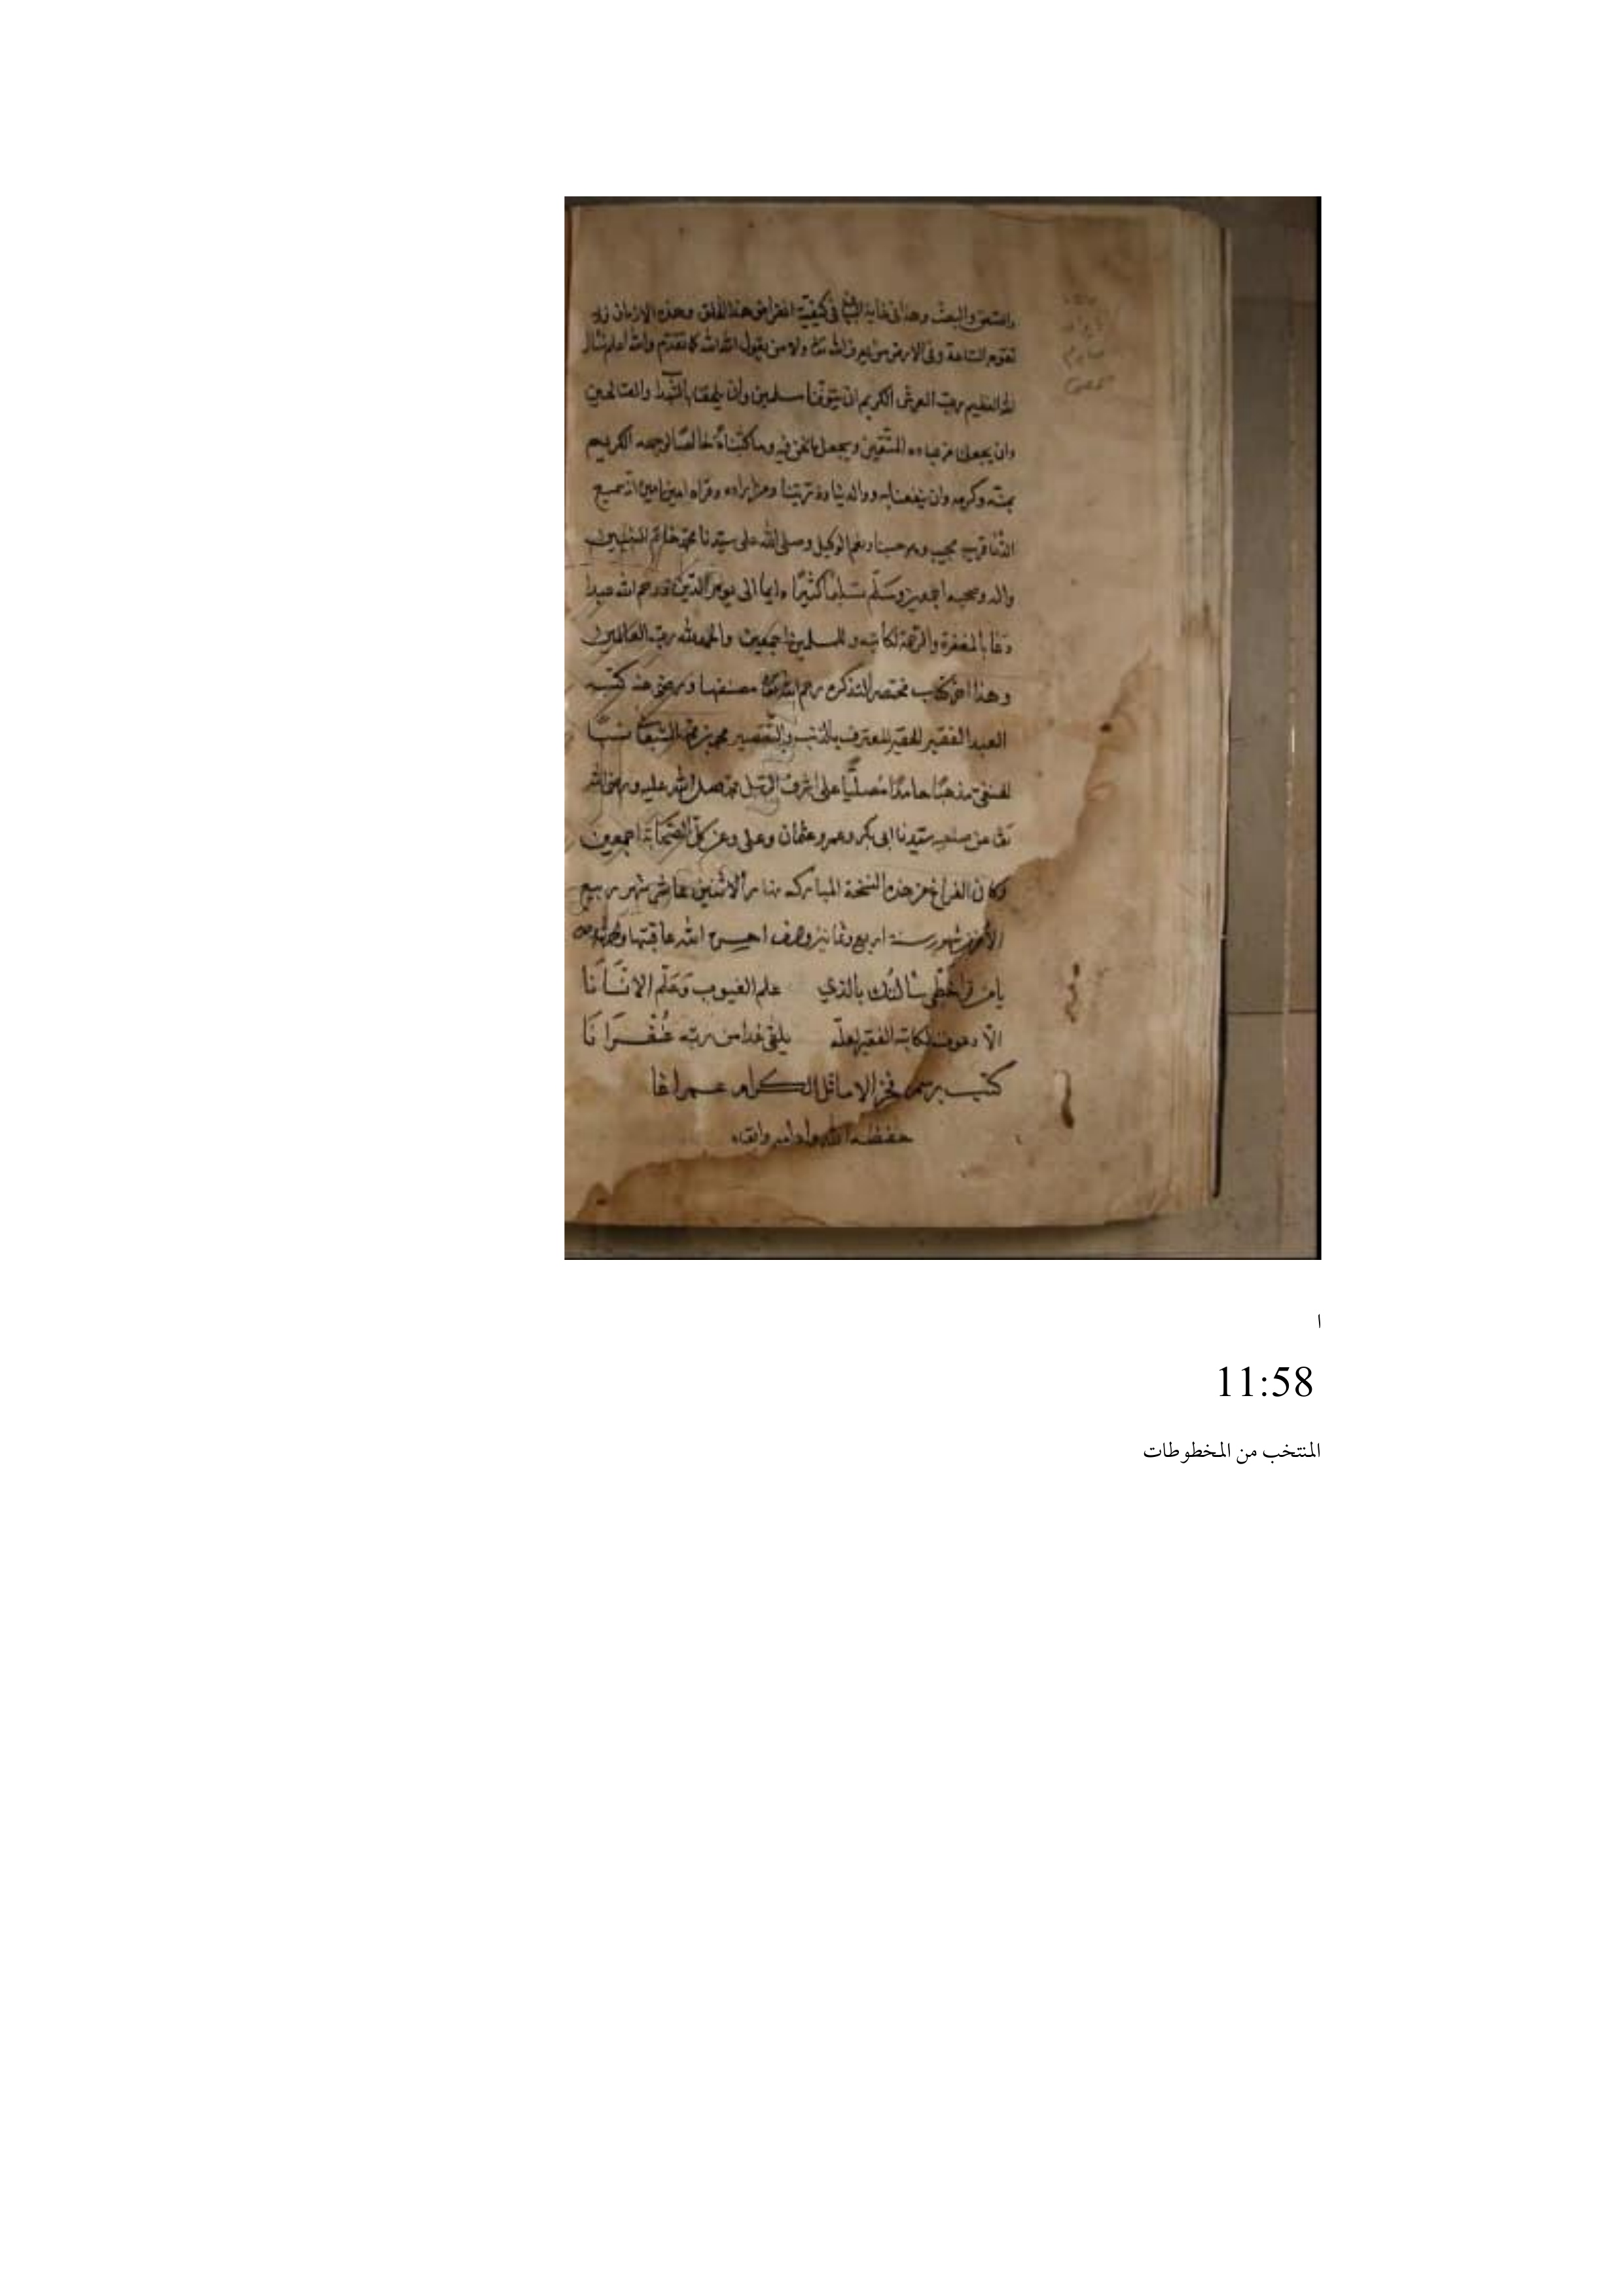 والصعق والبعث وهذا في غاية في كيفية انقراض هذا الخلق وهذه الازمان فلا
تقوم الساعة وفى الارض من يعرف الله ولا من يقول الله الله كما تقدم والله اعلم نسأل
الله العظيم رب العرش الكريم ان يتوفنا مسلمين وان يلحقنا بالشهدا والصالحين
وان يجعلنا من عباده المتقين ويجعل ما نحن فيه وما كتبناه خالصًا لوجهه الكريم
بمنه وكرمه وان ينفعنا به ووالدينا وذريتنا وقراه امين امين انه سميع
الدعا قريب مجيب وهو حسبنا ونعم الوكيل وصلى الله على سيدنا محمد خاتم
واله وصحبه اجمعين وسلم تسليما كثيرًا دايما الى يوم الدين ورحم الله عبدا
دعا بالمغفرة والرحمة لكاتبه وللمسلمين اجمعين والحمد لله رب العالمين
وهذا اخر كتاب مختصر التذكره رحم الله مصنفها ورضى عنه كتبه
العبد الفقير الحقير المعترف بالذنب والتقصير محمد بن نسبًا
الحنفي مذهبًا حامدًا مصليًا على اشرف الرسل محمد صلى الله عليه ورضى الله
سيدنا ابى بكر وعمر وعثمان وعلى وعن كل الصحابة اجمعين
وكان الفراغ من هذه النسخة المباركه نهار الاثنين عاشر شهر ربيع
الاخر من شهور سنة اربع وثمانين والف احسن الله عاقبتها
يا من قرا خطى سالتك بالذي علم الغيوب وعلّم الانسانا
الا دعوت لكاتبه الفقير لعلّه يلقى غدا من ربّه غفرانا
كتب برسم فخر الاماثل الكرام عمر اغا
حفظه الله وادامه وابقاه
ا
11:58
المنتخب من المخطوطات